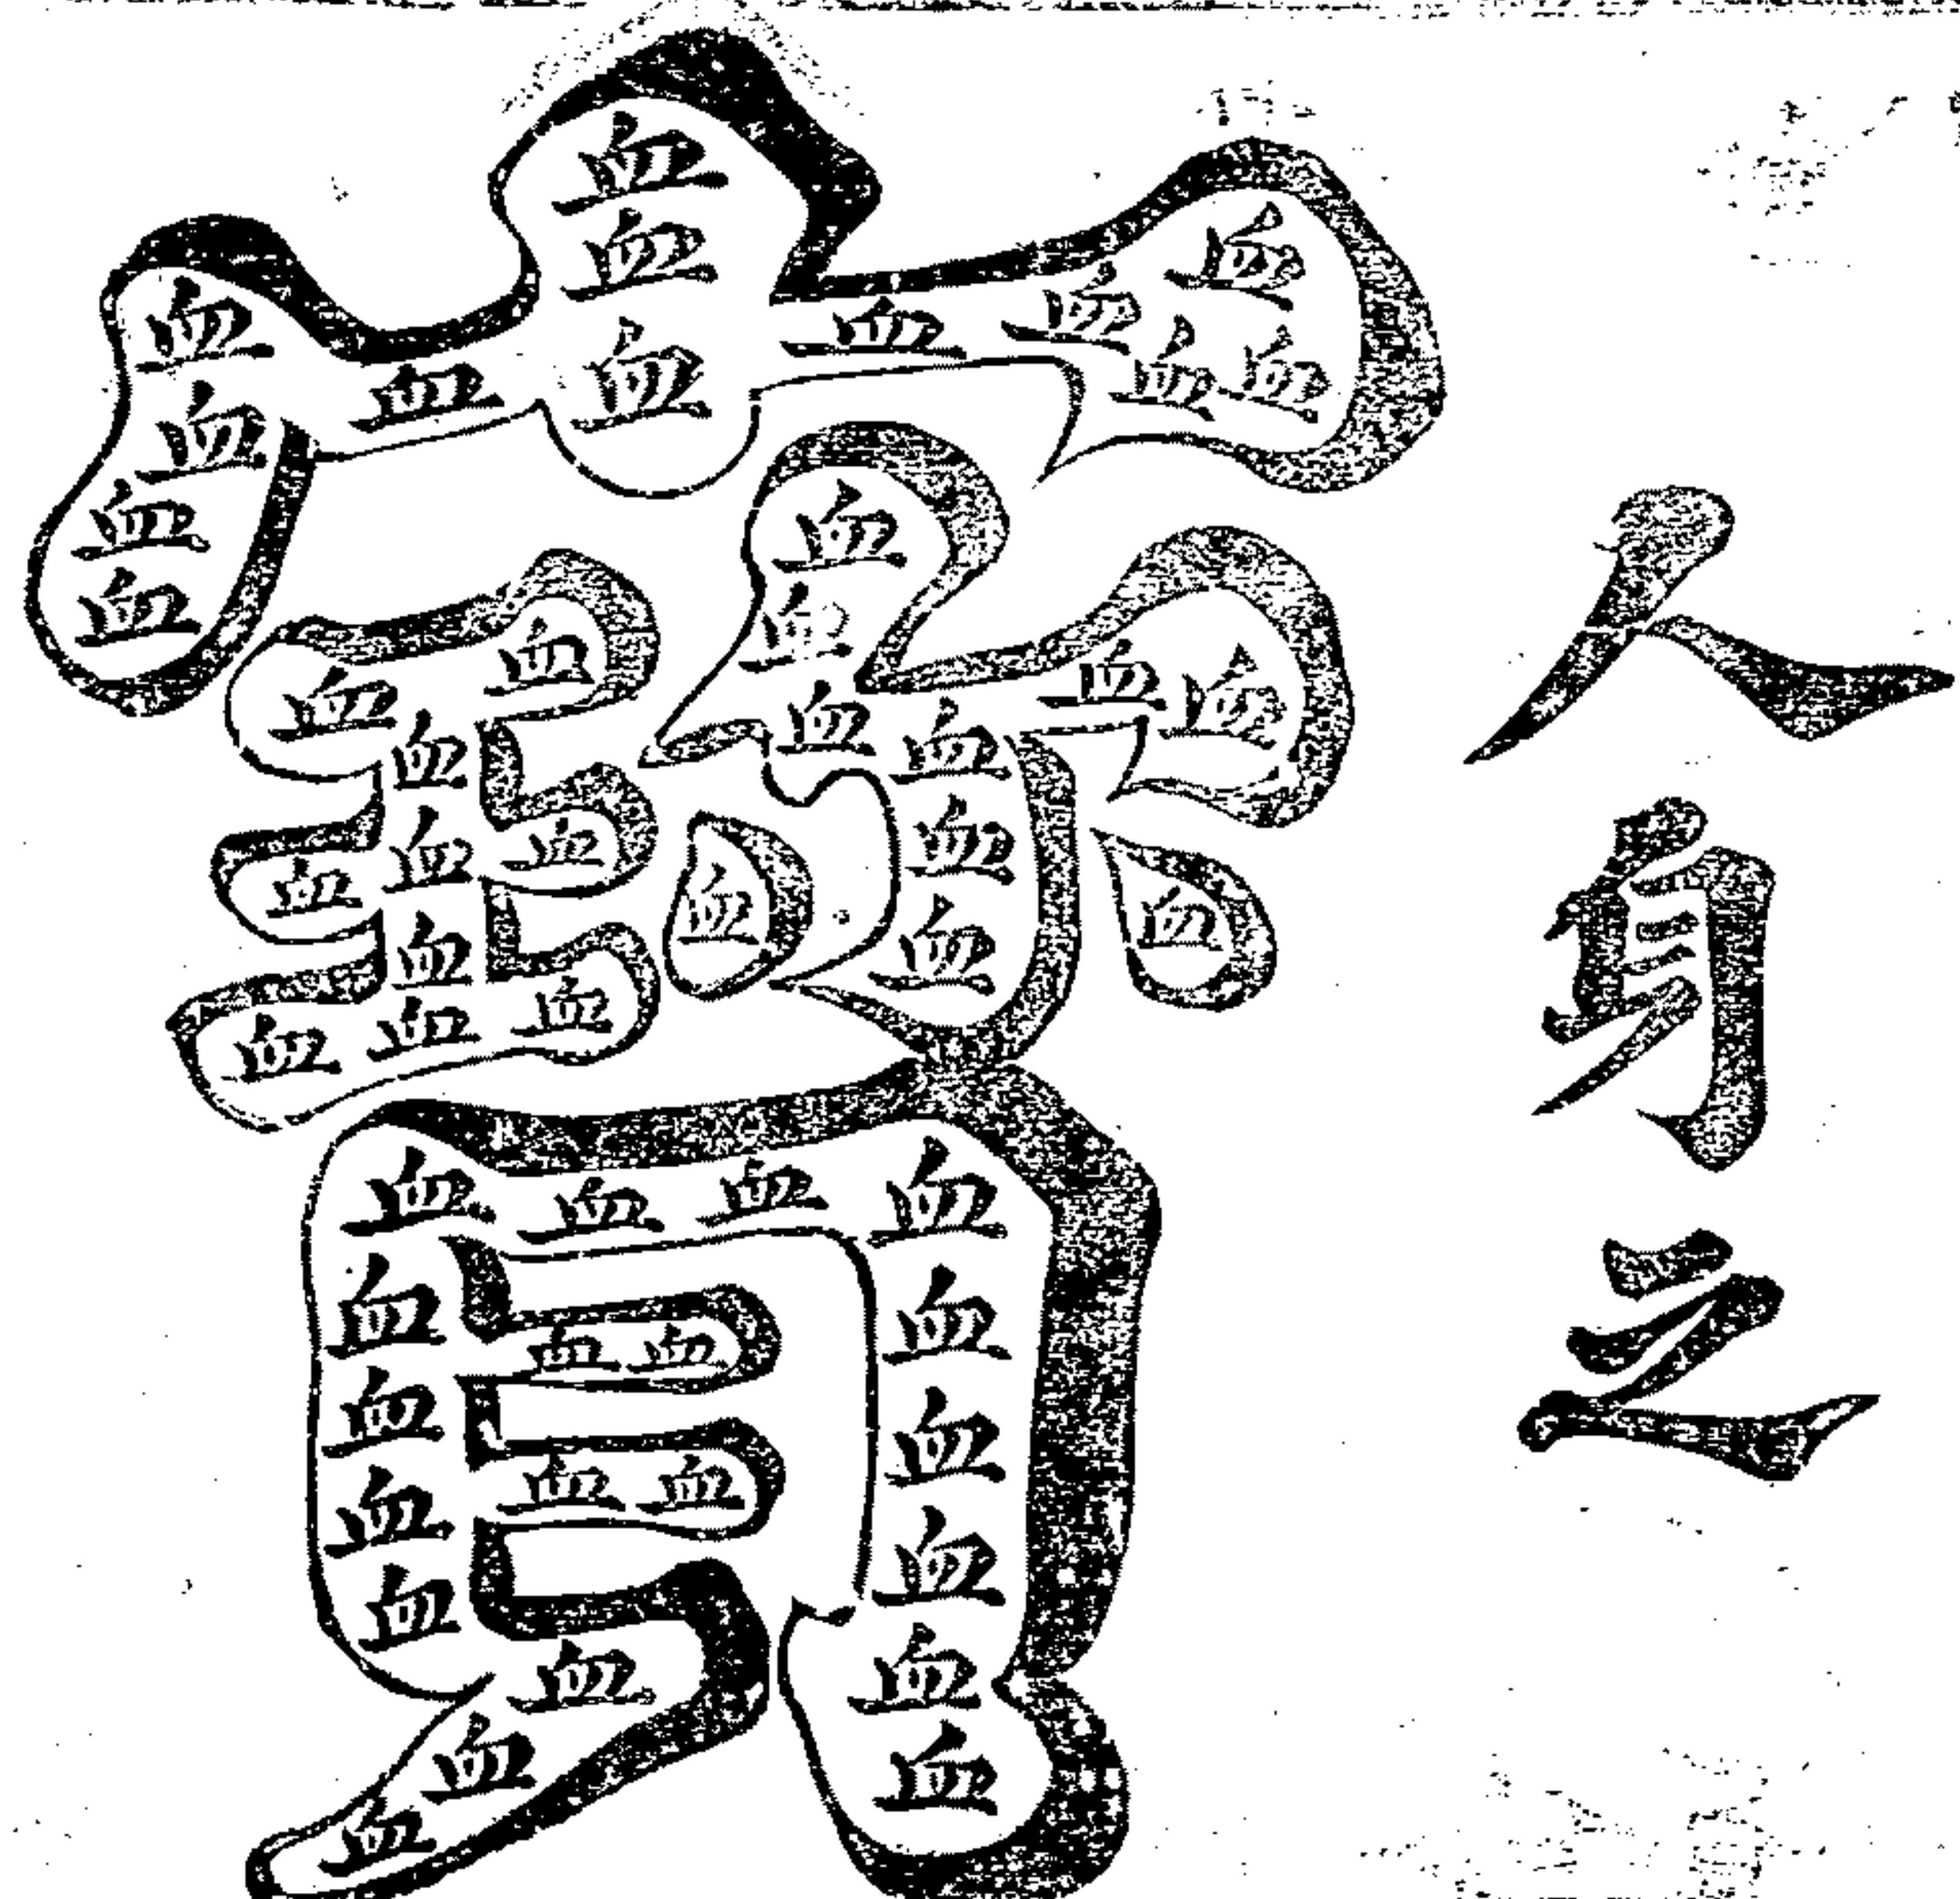 人身之
寳
血血血血血血血血血血血血血
血血血血血血血血血血
血血血血血血血血血血
血血血血血血血血血血血血血血血血血血血血